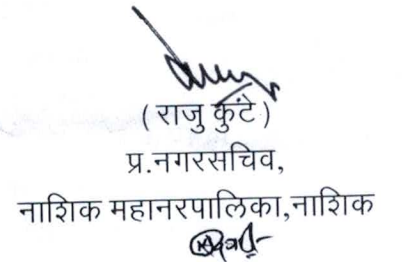 ( राजु कुटे )
प्र.नगरसचिव,
नाशिक महानरपालिका,नाशिक